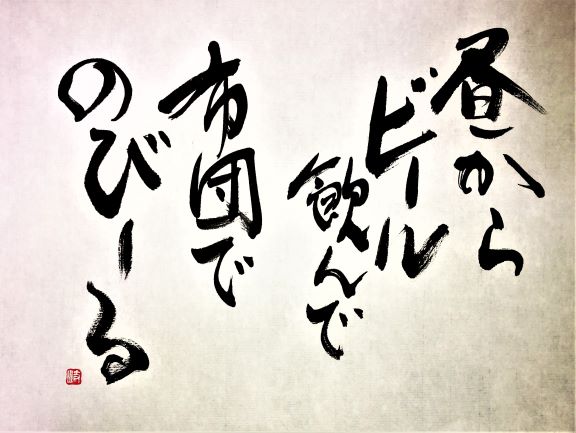 昼から
ビール
飲んで
布団で
のびーる